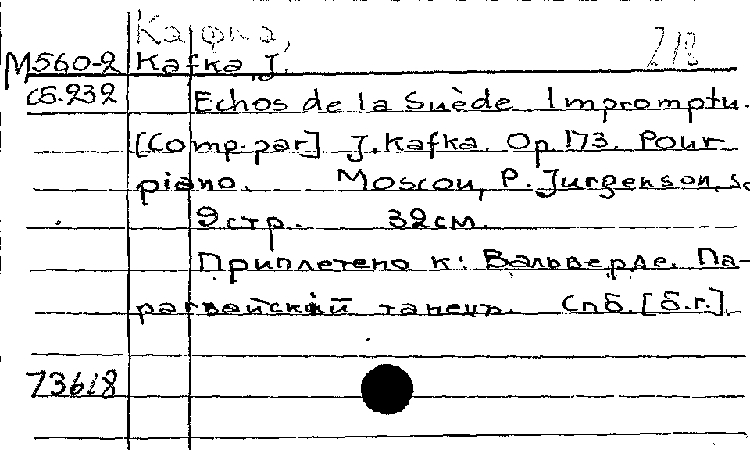 Кафка,
М560-2 Kafka J. 2/8
сб.232 Echos de la Suède. Impromptu.
[Comp. par] J. Kafka. Op. 173. Pour
piano. Moscou, P. Jurgenson, s.
9 стр. 32 см.
Приплетено к: Вальверде. Па-
рагвайский танець. Спб. [б.г.].
73618